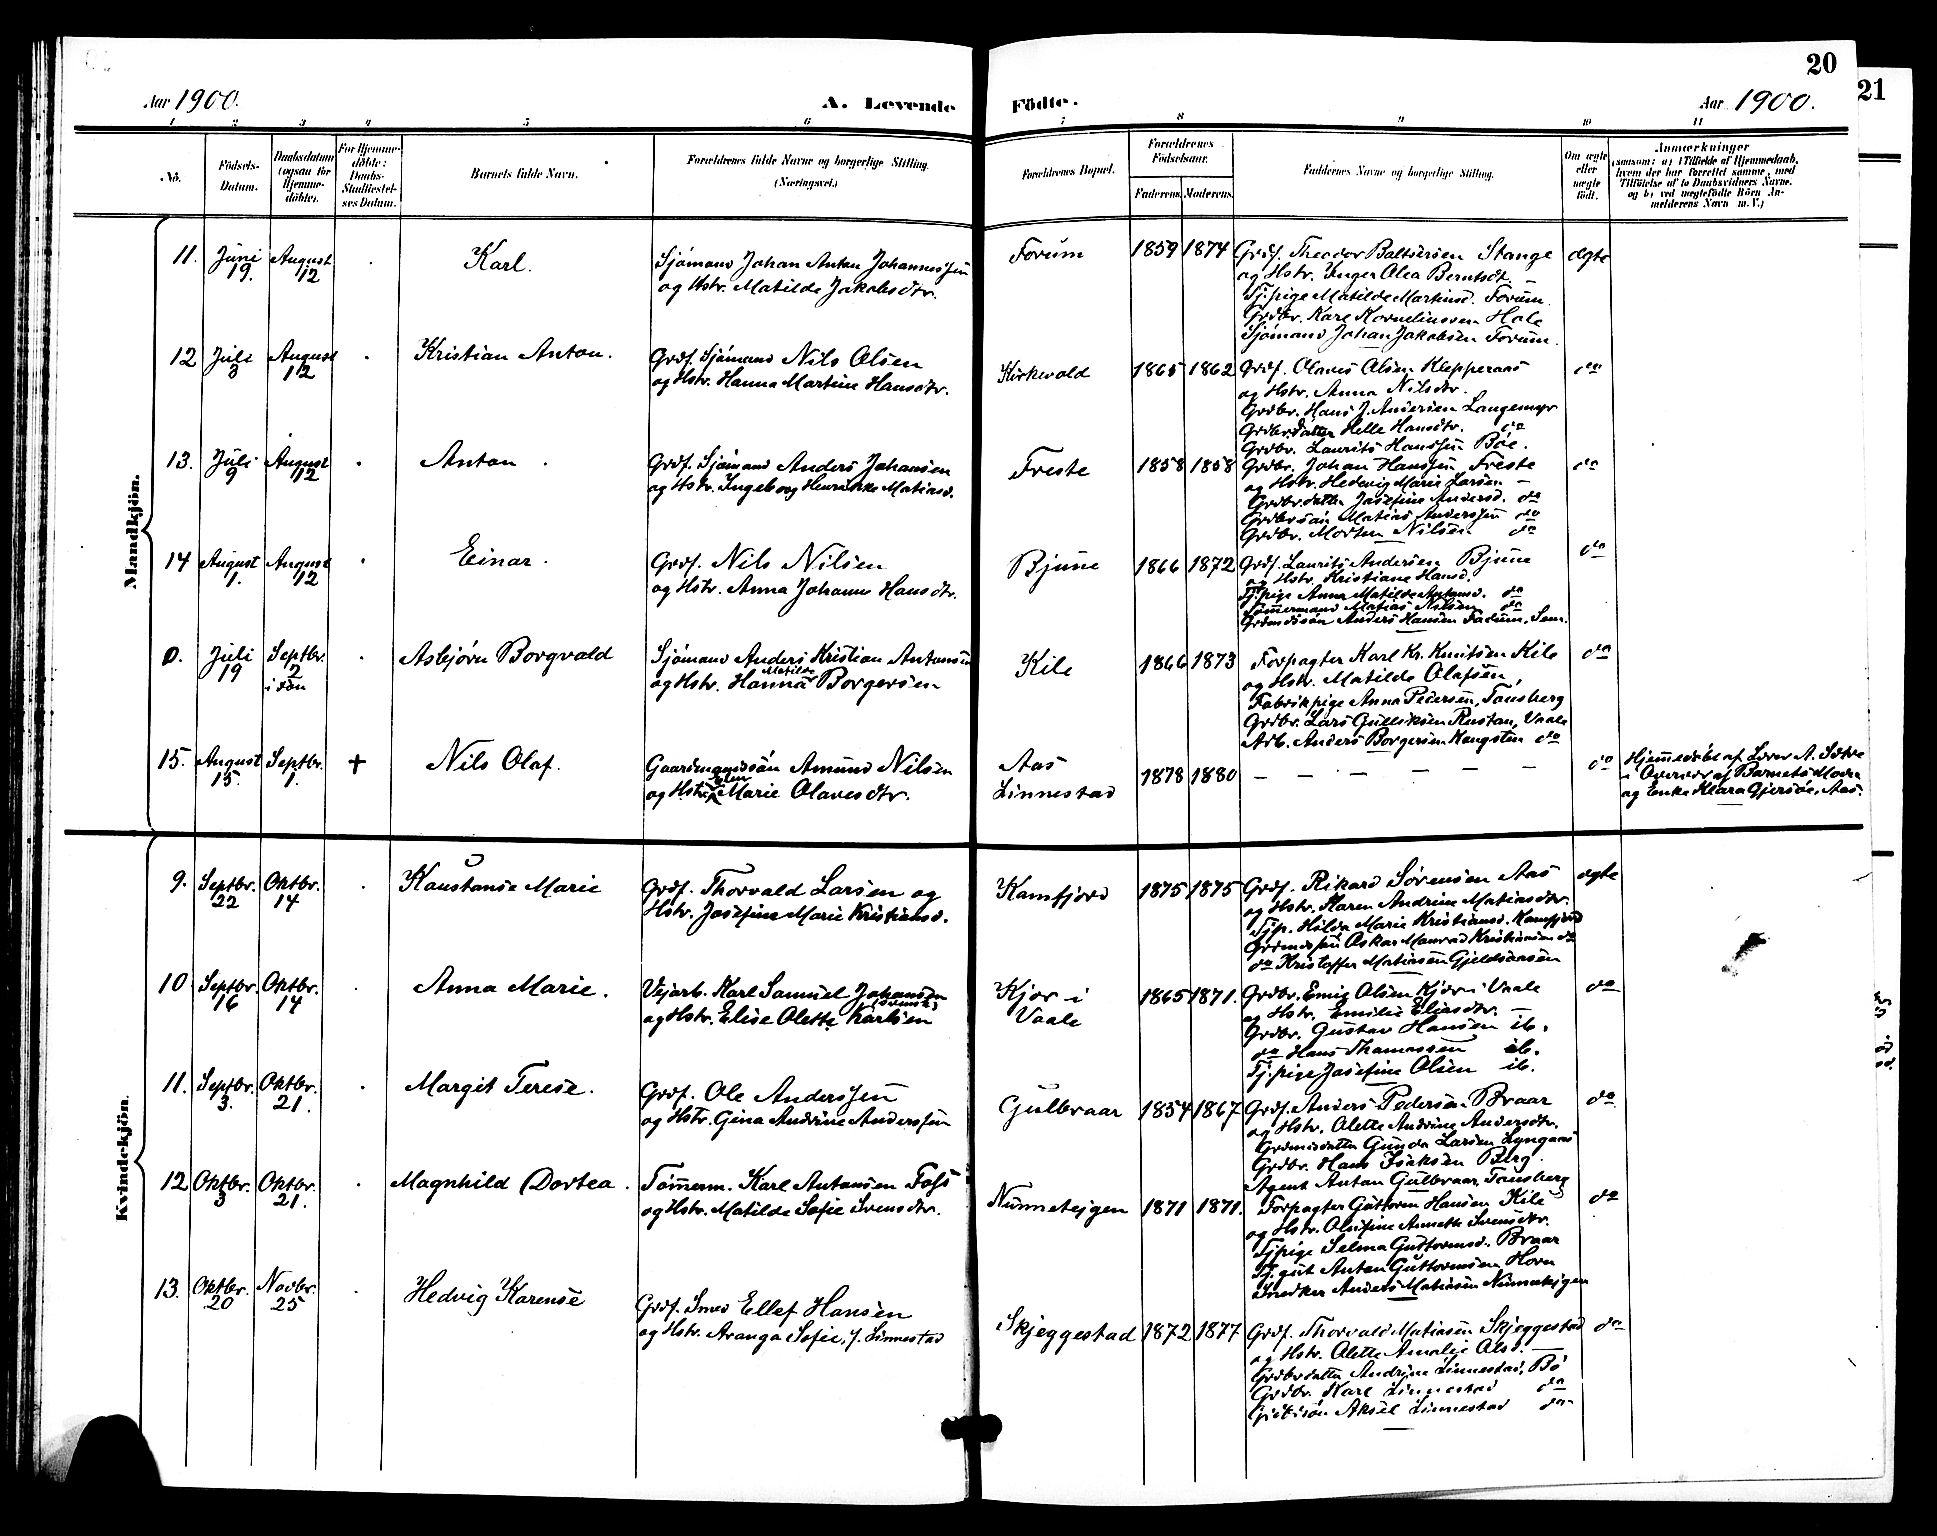 20
21
Aar 1900.
A. Levende
Födte.
Aar 1900.
1 2 3 4 5 6 7 8 9 10 11
No.
Födsels-
Datum.
Daabsdatum
(ogsaa for
Hjemme-
döbte).
For Hjemme-
döbte:
Daabs-
Stadfæstel-
ses Datum.
Barnets fulde Navn.
Forældrenes fulde Navne og borgerlige Stilling.
(Næringsvei.)
Forældrenes Bopæl.
Forældrenes
Födselsaar.
Faderens. Moderens.
Faddernes Navne og borgerlige Stilling.
Om ægte
eller
uægte
født.
Anmærkninger
(saasom: a) i Tilfælde af Hjemmedaab,
hvem der har forrettet samme, med
Tilföielse af to Daabsvidners Navne.
og b) ved uægtefödte Börn An-
melderens Navn m. V.)
Mandkjön.
11. Juni 19. August 12 Karl.
Sjømand Johan Anton Johannessen
og Hstr. Matilde Jakobsdtr.
Forum 1859 1874
Grdf. Theodor Baltsersen Stange
og Hstr. Inger Olea Berntsdt. –
Tj.pige Matilde Martinsd. Forum.
Grdbr. Karl Korneliussen Hole
Sjømand Johan Jakobsen Forum.
ægte
12 Juli 3 August 12 Kristian Anton.
Grdf. Sjømand Nils Olsen
og Hstr. Hanna Martine Hansdtr.
Kirkevold 1865 1862
Grdf. Olaves Olsen Klepperaas
og Hstr. Anna Nilsdtr.
Grdbr. Hans J. Andersen Langemyr
Grdbr.datter Helle Hansdtr. do
Grdbr. Laurits Hanssen Bøe.
do
13. Juli 9 August 12 Anton.
Grdf. Sjømand Anders Johansen
og Hstr. Ingeborg Henrikke Matiasd.
Freste 1858 1858
Grdbr. Johan Hanssen Freste
og Hstr. Hedevig Marie Larsen –
Grdbr.datter Josefine Andersd. do
Grdbrsøn Matias Anderssen do
Grdbr. Morten Nilsen do
do
14 August 1. August 12 Einar.
Grdf. Nils Nilsen
og Hstr. Anna Johanne Hansdtr.
Bjune 1866 1872
Grdf. Laurits Andersen Bjune
og Hstr. Kristiane Hansd.
Tj.pige Anna Matilde Antonsd. do
Tømmermand Matias Nilsen do
Grdmdssøn Anders Hansen Fadum, Sem.
do
0. Juli 19 Septbr. 2 Asbjørn Borgvald
Sjømand Anders Kristian Antonsen
og Hstr. Hanna Matilde Borgersen
Kile 1866 1873
Forpagter Karl Kr. Knutsen Kile
og Hstr. Matilde Olafsen,
Fabrikpige Anna Pedersen, Tønsberg
Grdbr. Lars Gulliksen Rustan, Vaale
Arb. Anders Borgersen Haugsten do
do
15. August 15. Septbr. 1. + Nils Olaf.
Gaardmandssøn Amund Nilsen
og Hstr. Marie Olavesdtr.
Aas
Linnestad
1878 1880 – – – – – –
do
Hjemmedøbt af Lærer A. Sætre
i Overvær af Barnets Moder
og Enke Klara Gjersøe, Aas.
Kvindekjön.
9. Septbr. 22 Oktbr. 14 Konstanse Marie
Grdf. Thorvald Larsen og
Hstr. Josefine Marie Kristiansd.
Kamfjord 1875 1875
Grdf. Rikard Sørensen Aas
og Hstr. Karen Andrine Matiasdtr.
Tjp. Hilda Marie Kristiansd. Kamfjord
Grdmdssøn Oskar Manrad Kristiansen do
do Kristoffer Matiasen Gjelsaasen
ægte
10 Septbr. 16 Oktbr. 14 Anna Marie.
Vejarb. Karl Samuel Johansen
(svensk)
og Hstr. Elise Olette Karlsen
Kjær i
Vaale
1865 1871.
Grdbr. Emig Olsen Kjær i Vaale
og Hstr. Emilie Eliasdtr. –
Grdbr. Gustav Hansen ib.
do Hans Thomassen ib.
Tj.pige Josefine Olsen ib.
do
11. Septbr. 3. Oktbr. 21. Margit Terese.
Grdf. Ole Anderssen
og Hstr. Gina Andrine Anderssen
Gulbraar 1854 1867
Grdf. Anders Pedersen Braar
og Hstr. Olette Andrine Andersdtr.
Grdmdsdatter Gunda Larsen Lyngaas
Grdbr. Hans Isaksen Berg.
Agent Anton Gulbraar, Tønsberg
do
12 Oktbr. 3 Oktbr. 21. Magnhild Dortea.
Tømmerm. Karl Antonsen Foss
og Hstr. Matilde Sofie Svensdtr.
Nunnetejgen 1871 1871.
Forpagter Guttorm Hansen Kile
og Hstr. Olufine Annette Svensdtr.
Tjpige Selma Guttormsd. Braar
Tj.gut Anton Guttormsen Horn
Snedker Anders Matiasen Nunnetejgen
do
13. Oktbr. 20 Novbr. 25 Hedvig Karense
Grdf. Smed Ellef Hansen
og Hstr. Aranga Sofie, f. Linnestad
Skjeggestad 1872 1877
Grdf. Thorvald Matiasen Skjeggestad
og Hstr. Olette Amalie Olsd. –
Grdbrdatter Andrine Linnestad, Bö
Grdbr. Karl Linnestad do
Grdbrsøn Aksel Linnestad do
do